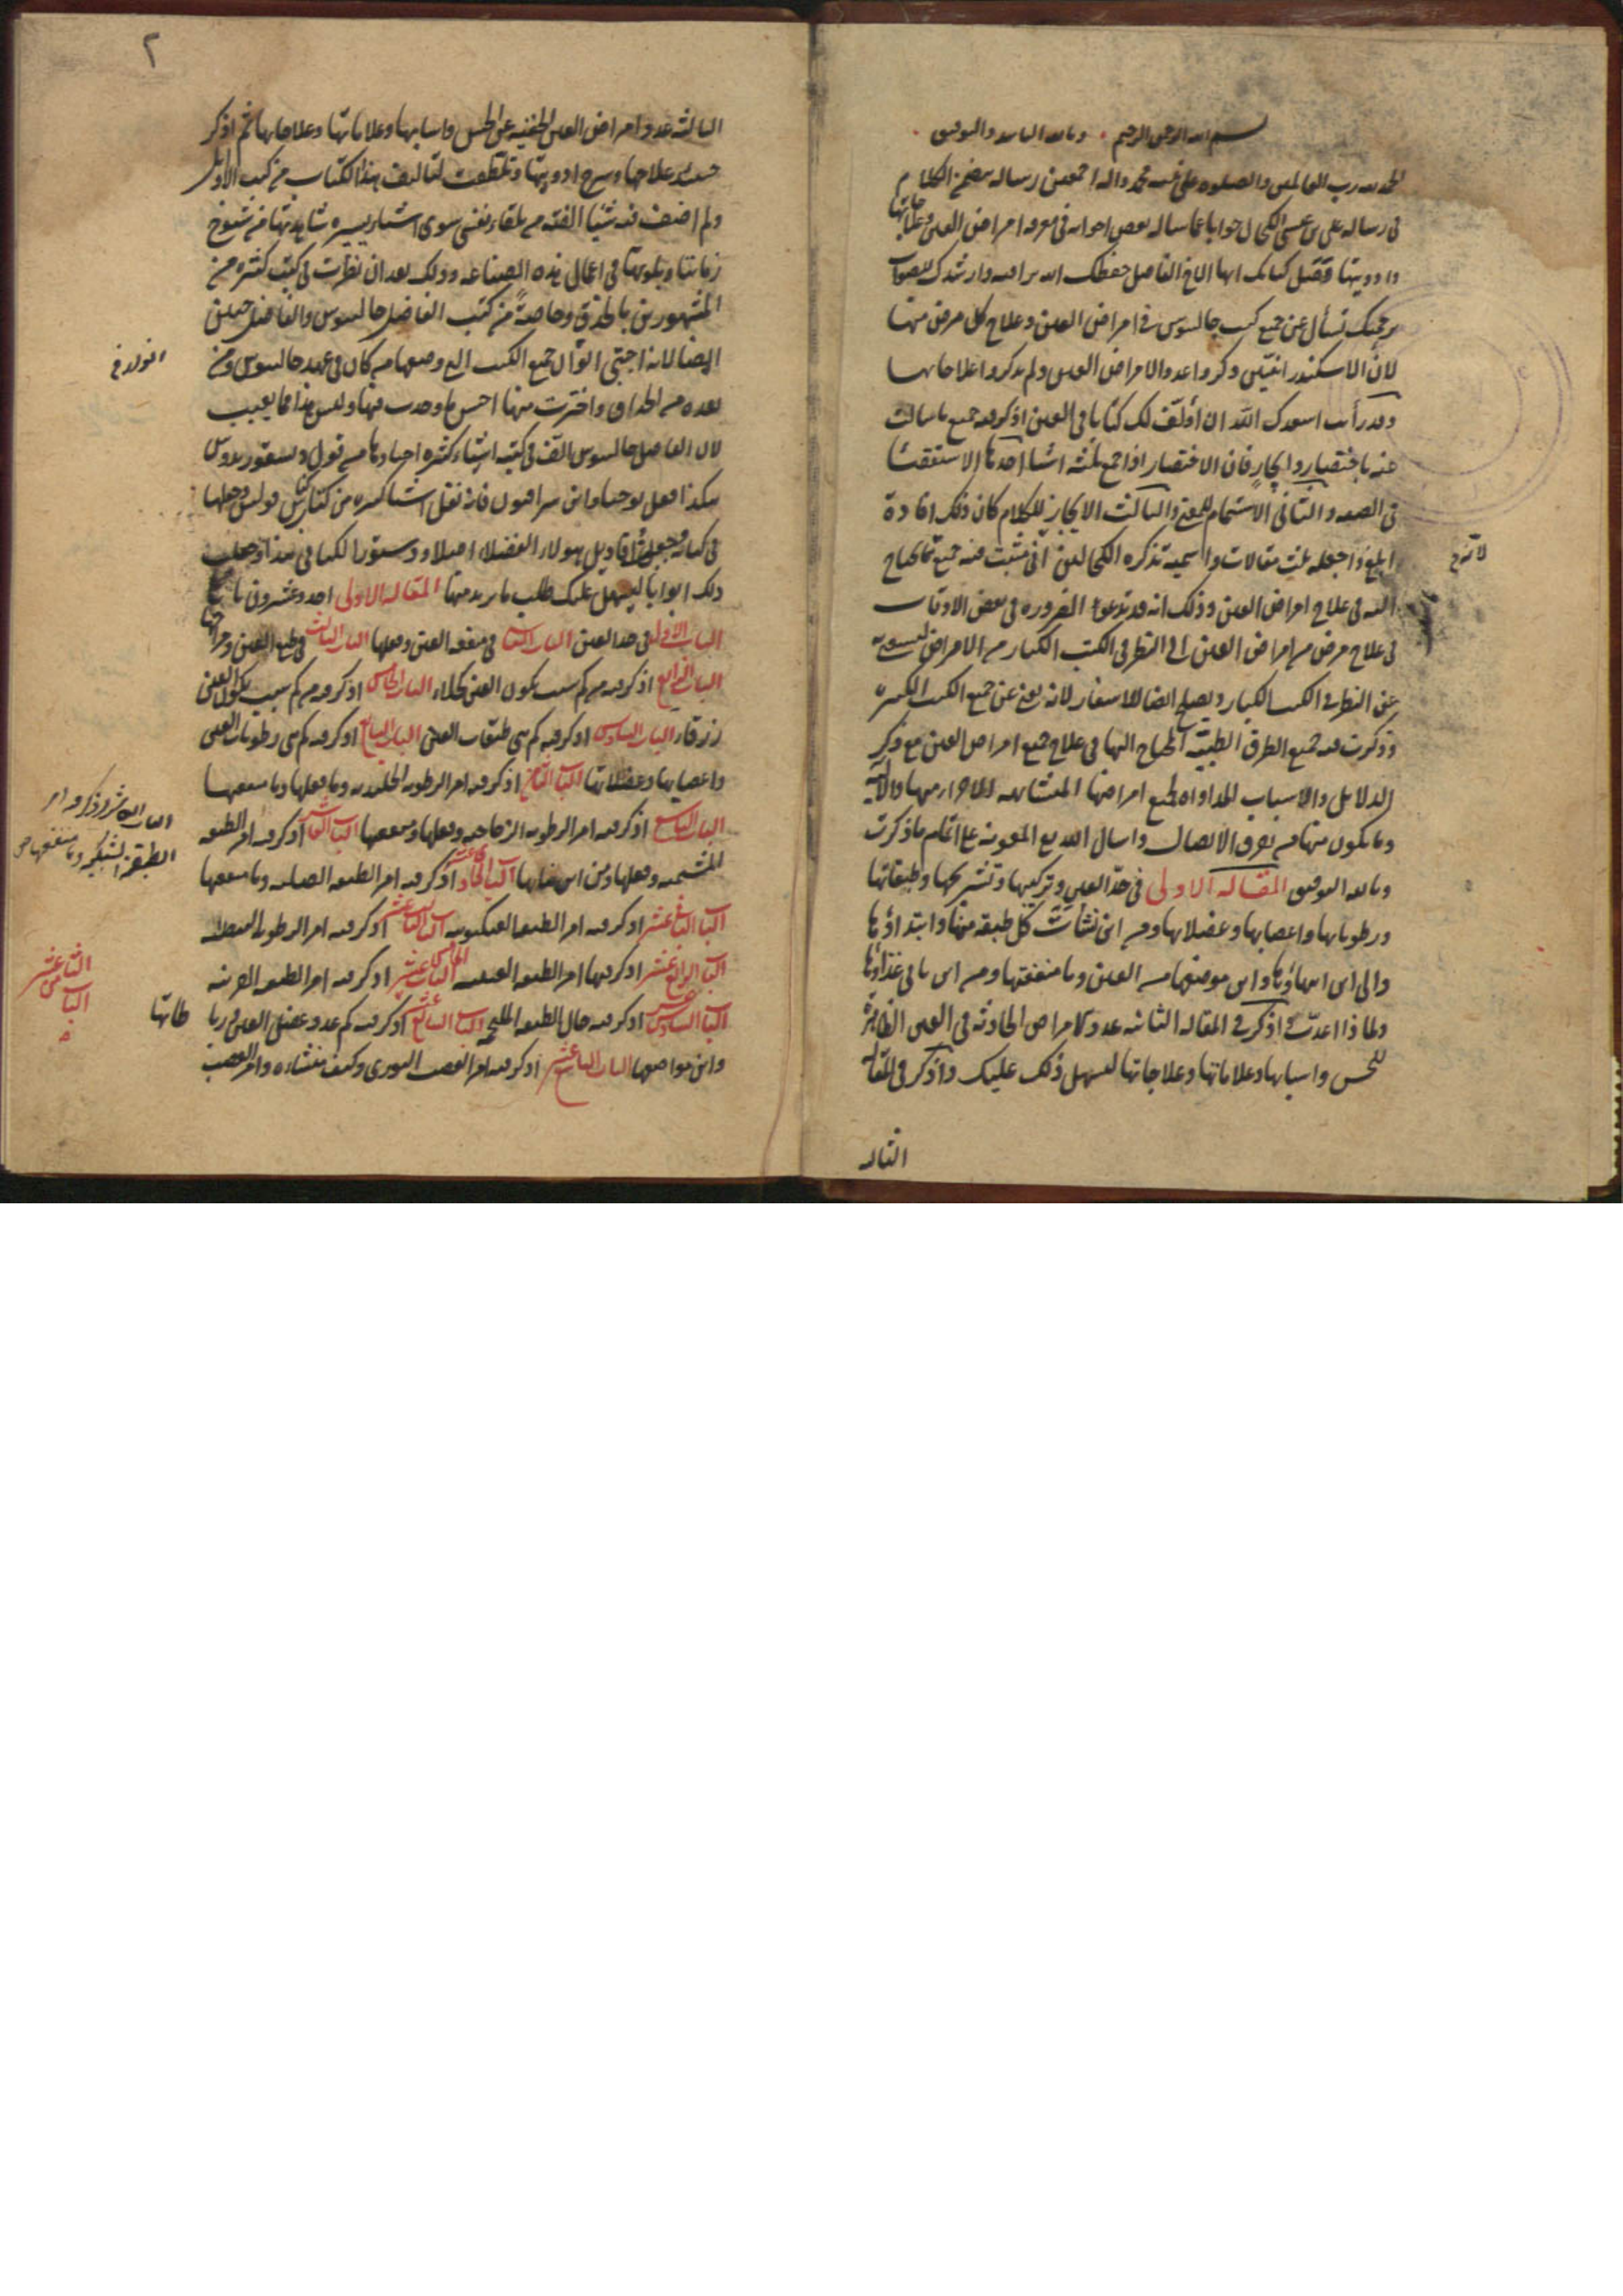 بسم الله الرحمن الرحيم وبالله التوفيق
الحمد لله رب العالمين والصلوة على محمد واله اجمعين رساله الكلام
فى رساله على بن عيسى الكحال جوابا عما ساله بعض اخوانه فى معرفه امراض العين وعلاجاتها
وادويتها فقيل كتابك ايها الاخ الفاضل حفظك الله وارشدك للصواب
برحمتك تسأل عن جميع كتب جالينوس فى امراض العين وعلاج كل مرض منها
لان الاسكندرانيين ذكروا عدد الامراض العين ولم يذكروا علاجاتها
وقد رأيت اسعدك الله ان أؤلف لك كتابا فى العين اذكر فيه جميع ما سالت
عنه باختصار وايجاز فان الاختصار اذا جمع ثلثه اشيا احدها الاستقصا
فى الصفه والثانى الاستتمام للمعنى والثالث الايجاز للكلام كان ذلك افادة
ابلغ واجعله ثلث مقالات واسميه تذكره الكحالين اذنى مثبت فيه جميع ما يحتاج
اليه فى علاج امراض العين وذلك انه قد تدعو الضروره فى بعض الاوقات
فى علاج مرض من امراض العين الى النظر فى الكتب الكبار من الامراض
عن النظر فى الكتب الكبار ويصلح ايضا للاسفار لانه يغنى عن جميع الكتب الكثيره
وذكرت فيه جميع الطرق الطبية المحتاج اليها فى علاج جميع امراض العين مع ذكر
الدلايل والاسباب المداواه لجميع امراضها المتشابهه الاجزاء منها والاليه
وما يكون منها من تفرق الاتصال واسال الله مع المعونه على اتمام ما ذكرت
وبالله التوفيق المقاله الاولى فى حد العين وتركيبها وتشريحها وطبقاتها
ورطوباتها واعصابها وعضلاتها ومن اين نشأت كل طبقه منها وابتداؤها
والى اين انتهاؤها واين موضعها من العين وما منفعتها ومن اين ياتى غذاؤها
ولماذا اعدت اذكر فى المقاله الثانيه عدد الامراض الحادثه فى العين الظاهرة
للحس واسبابها وعلاماتها وعلاجاتها ليسهل ذلك عليك واذكر فى المقاله
الثالثه
٢
الثالثه عدد امراض العين الخفيه عن الحس واسبابها وعلاماتها وعلاجاتها ثم اذكر
علاجها وشرح ادويتها والتقطت لتاليف هذا الكتاب من كتب الاوايل
ولم اضف فيه شيئا الفته من تلقاء نفسى سوى اشياء يسيره شاهدتها من شيوخ
زماننا وبلوتها فى اعمال هذه الصناعه وذلك بعد ان نظرت فى كتب كثيره من
المشهورين بالحذق وخاصة من كتب الفاضل جالينوس والفاضل حنين
ايضا لانه اجتبى اقوال جميع الكتب التى وضعها من كان فى عهد جالينوس ومن
بعده من الحذاق واخترت منها احسن ما وجدت فيها وليس هذا مما يعيب
لان الفاضل جالينوس الف فى كتبه اشياء كثيره اختارها من قول ديسقوريدوس
هكذا فعل يوحنا وابن سرافيون فانه نقل اشيا كثيره من كناش فولس وجعلها
فى كتابه فجعلت اقاويل هولاء الفضلاء اصلا ودستورا لكتابى هذا وجعلت
ذلك ابوابا ليسهل عليك طلب ما تريد منها المقاله الاولى احد وعشرون بابا
الباب الاول فى حد العين الباب الثانى فى منفعه العين وفعلها الباب الثالث فى طبع العين ومزاجها
الباب الرابع اذكر فيه من كم سبب يكون العين كحلاء الباب الخامس اذكر فيه من كم سبب تكون العين
زرقاء الباب السادس اذكر فيه كم هى طبقات العين الباب السابع اذكر فيه كم هى رطوبات العين
واعصابها وعضلاتها الباب الثامن اذكر فيه امر الرطوبه الجليديه وما فعلها وما منفعتها
الباب التاسع اذكر فيه امر الرطوبه الزجاجيه وفعلها ومنفعتها الباب العاشر اذكر فيه امر الطبقه
المشيميه وفعلها ومن اين نباتها الباب الحادى عشر اذكر فيه امر الطبقه الصلبه وما منفعتها
الباب الثانى عشر اذكر فيه امر الطبقه العنكبوتيه الباب الثالث عشر اذكر فيه امر الرطوبه البيضيه
الباب الرابع عشر اذكر فيها امر الطبقه العنبيه الباب الخامس عشر اذكر فيه امر الطبقه القرنيه
الباب السادس عشر اذكر فيه حال الطبقه الملتحمه الباب السابع عشر اذكر فيه كم عدد عضل العين
واين مواضعها الباب التاسع عشر اذكر فيه امر العصب النورى وكيف منشاءه وامر العصب
الباب العاشر اذكر فيه امر
الطبقه الشبكيه وما منفعتها صح
الثامن عشر
الباب